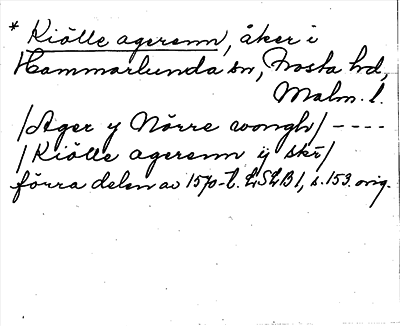 * Kiölle agerenn, åker i
Hammarlunda sn, Frosta hd,
Malm. l.
/Ager y Nörre wongh/ ----
/Kiölle agerenn ÿ skr/
förra delen av 1570-t. LSLB1, s. 153. orig.